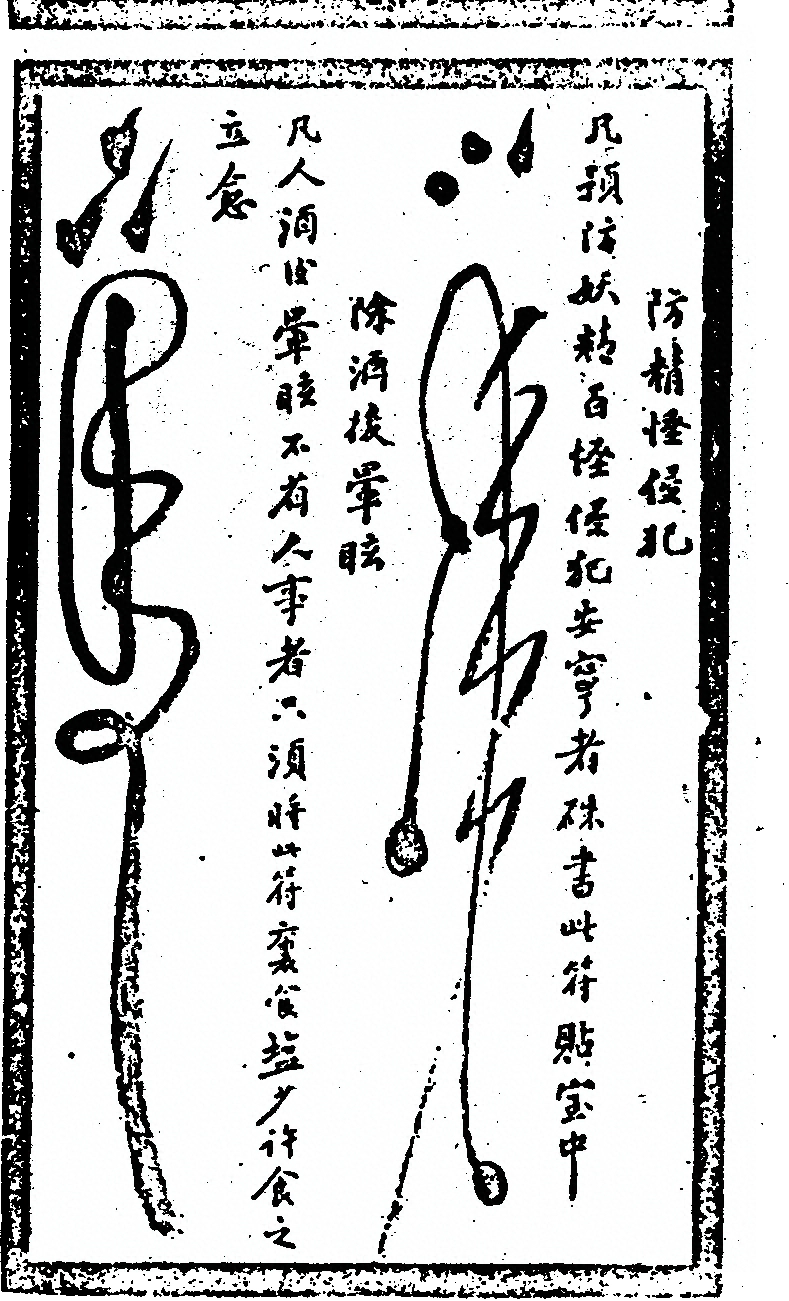 防精怪侵犯
凡預防妖精百怪侵犯安寧者硃書此符貼室中
除酒後暈眩
凡人酒後暈眩不省人事者只須將此符裹食塩少許食之
立愈